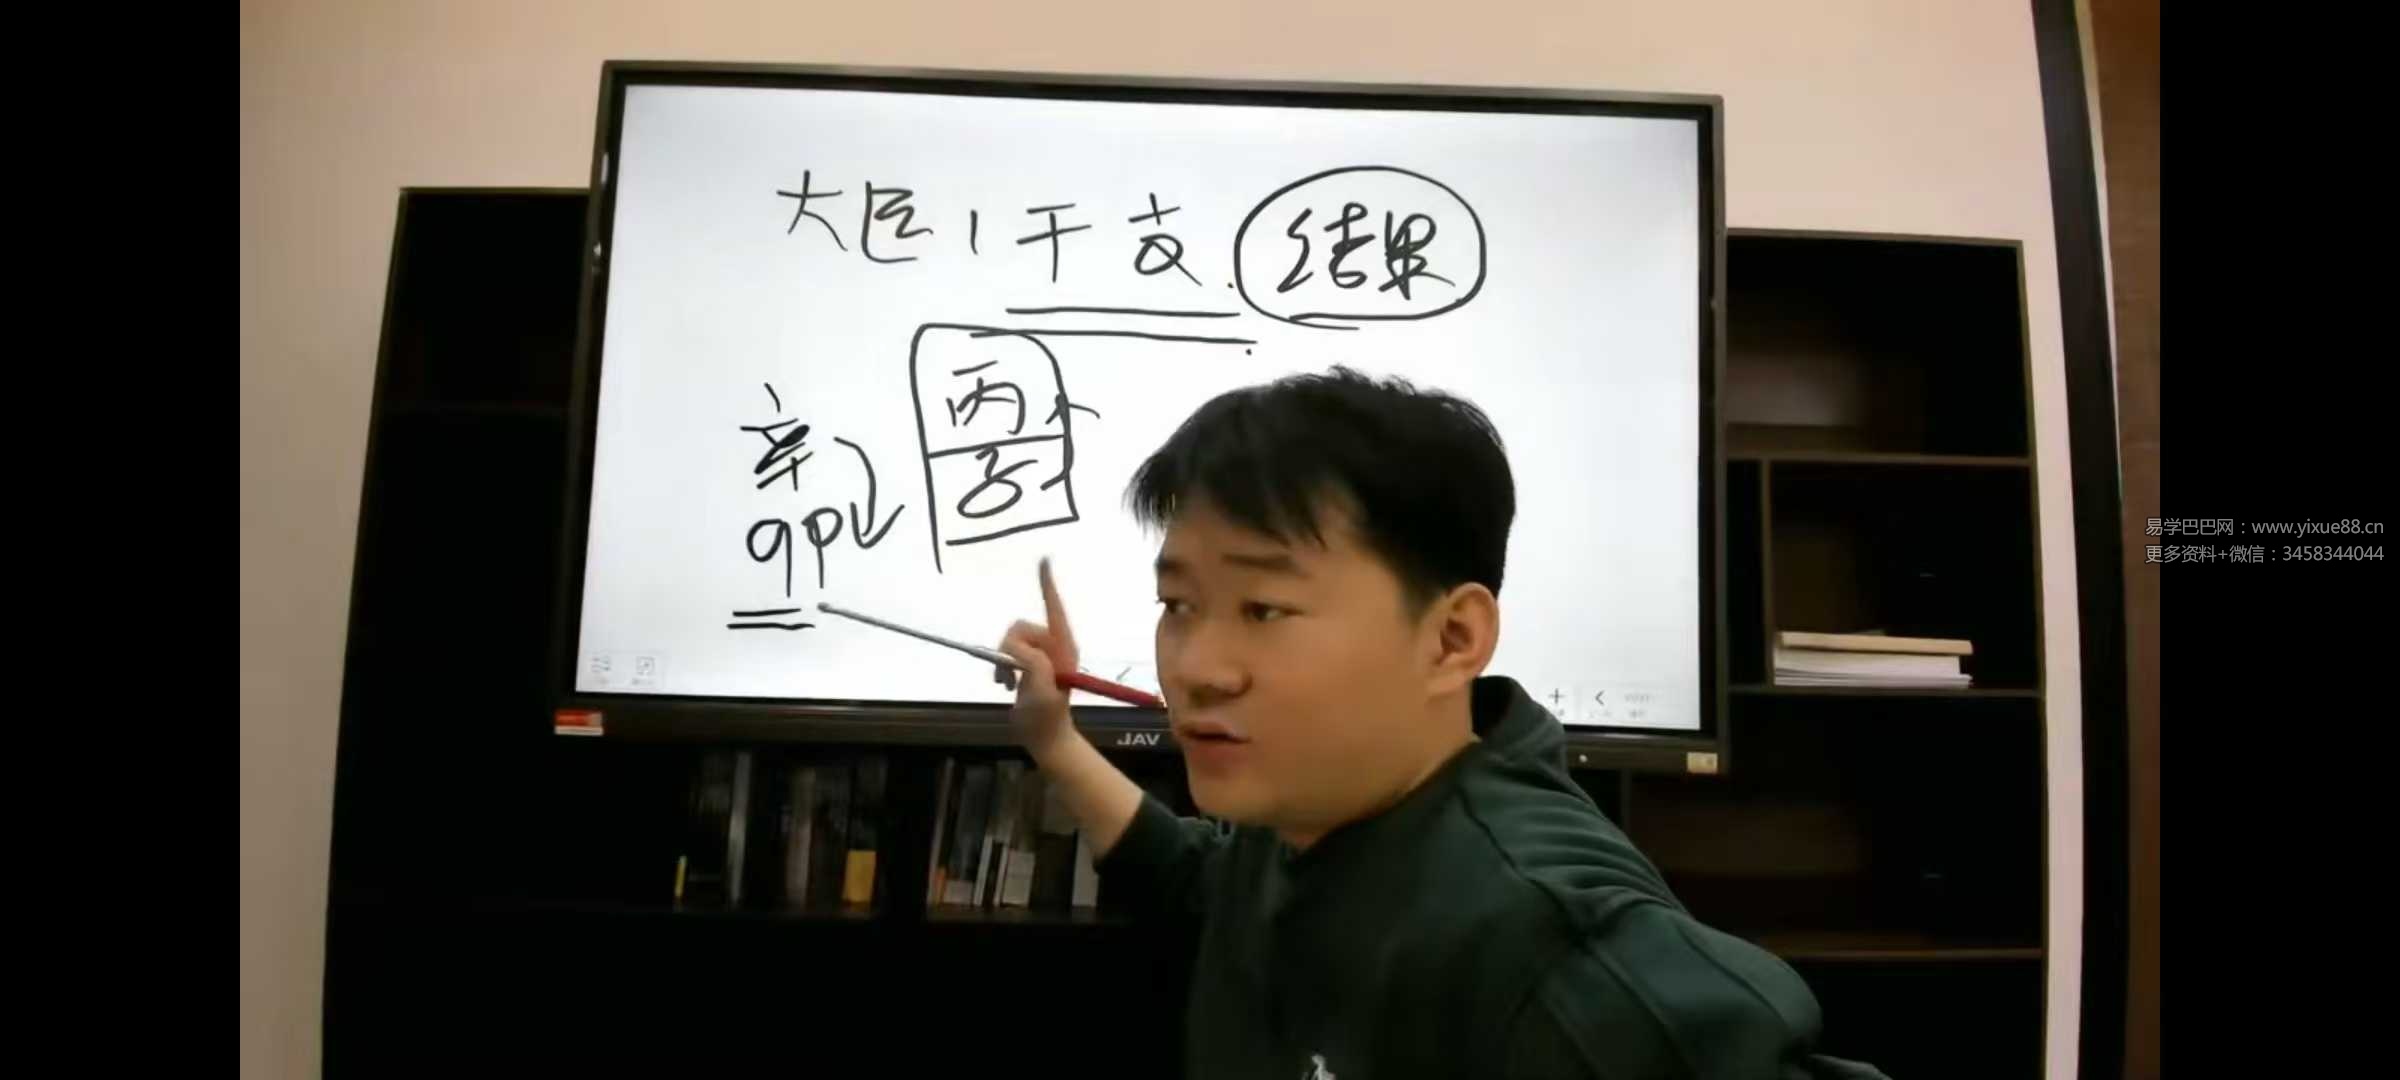 大臣，干支. 结果
丙
子
辛
卯
易学巴巴网：www.yixue88.cn
更多资料+微信：3458344044